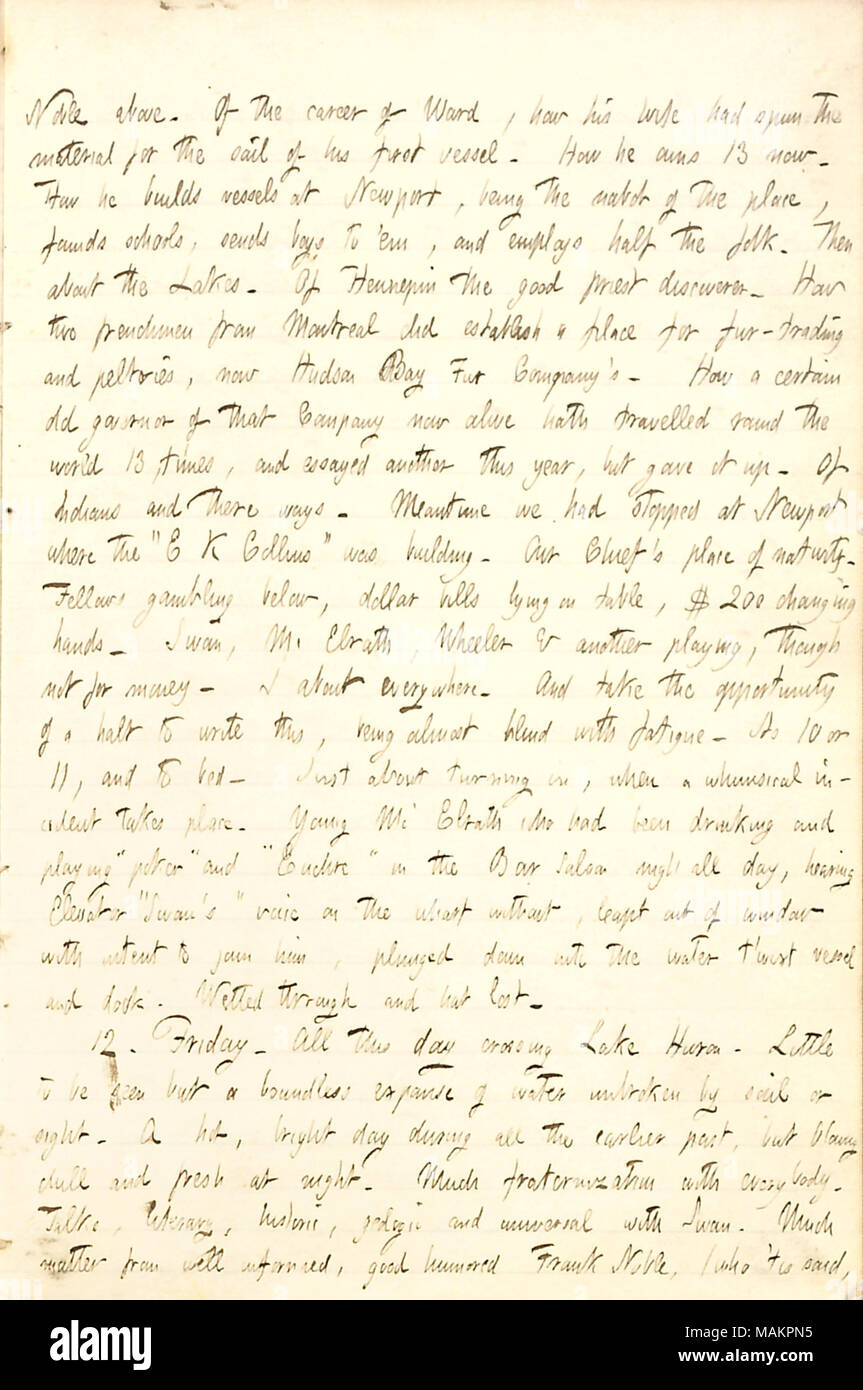 Noble above. Of the career of Ward, how his wife had spun the
material for the sail of his first vessel. How he owns 13 now.
How he builds vessels at Newport, being the nabob of the place,
founds schools, sends boys to 'em, and employs half the folk. Then
about the Lakes. Of Hennepin the good priest discoverer. How
two frenchmen from Montreal did establish a place for fur-trading
and peltries, now Hudson Bay Fur Company's. How a certain
old governor of that Company now alive hath travelled round the
world 13 times, and essayed another this year, but gave it up. Of
Indians and there ways. Meantime we had stopped at Newport
where the "E K Collins" was building. Our Chief's place of nativity.
Fellows gambling below, dollar bills lying on table, $ 200 changing
hands. Swan, Mc Elrath, Wheeler & another playing, though
not for money. I about everywhere. And take the opportunity
of a halt to write this, being almost blind with fatigue. As 10 or
11, and to bed. Just about turning in, when a whimsical in-
cident takes place. Young Mc Elrath who had been drinking and
playing "poker" and "Euchre" in the Bar saloon nigh all day, hearing
Elevator "Swan's" voice on the wharf without, leapt out of window
with intent to join him, plunged down into the water 'twixt vessel
and dock. Wetted through and hat lost.
12. Friday. All this day crossing Lake Huron. Little
to be seen but a boundless expanse of water unbroken by sail or
sight. A hot, bright day during all the earlier part, but blowing
chill and fresh at night. Much fraternization with everybody.
Talks, literary, historic, geologic and universal with Swan. Much
matter from well informed, good humored Frank Noble, (who 'tis said,
alamy
Image ID: MAKPN5
www.alamy.com